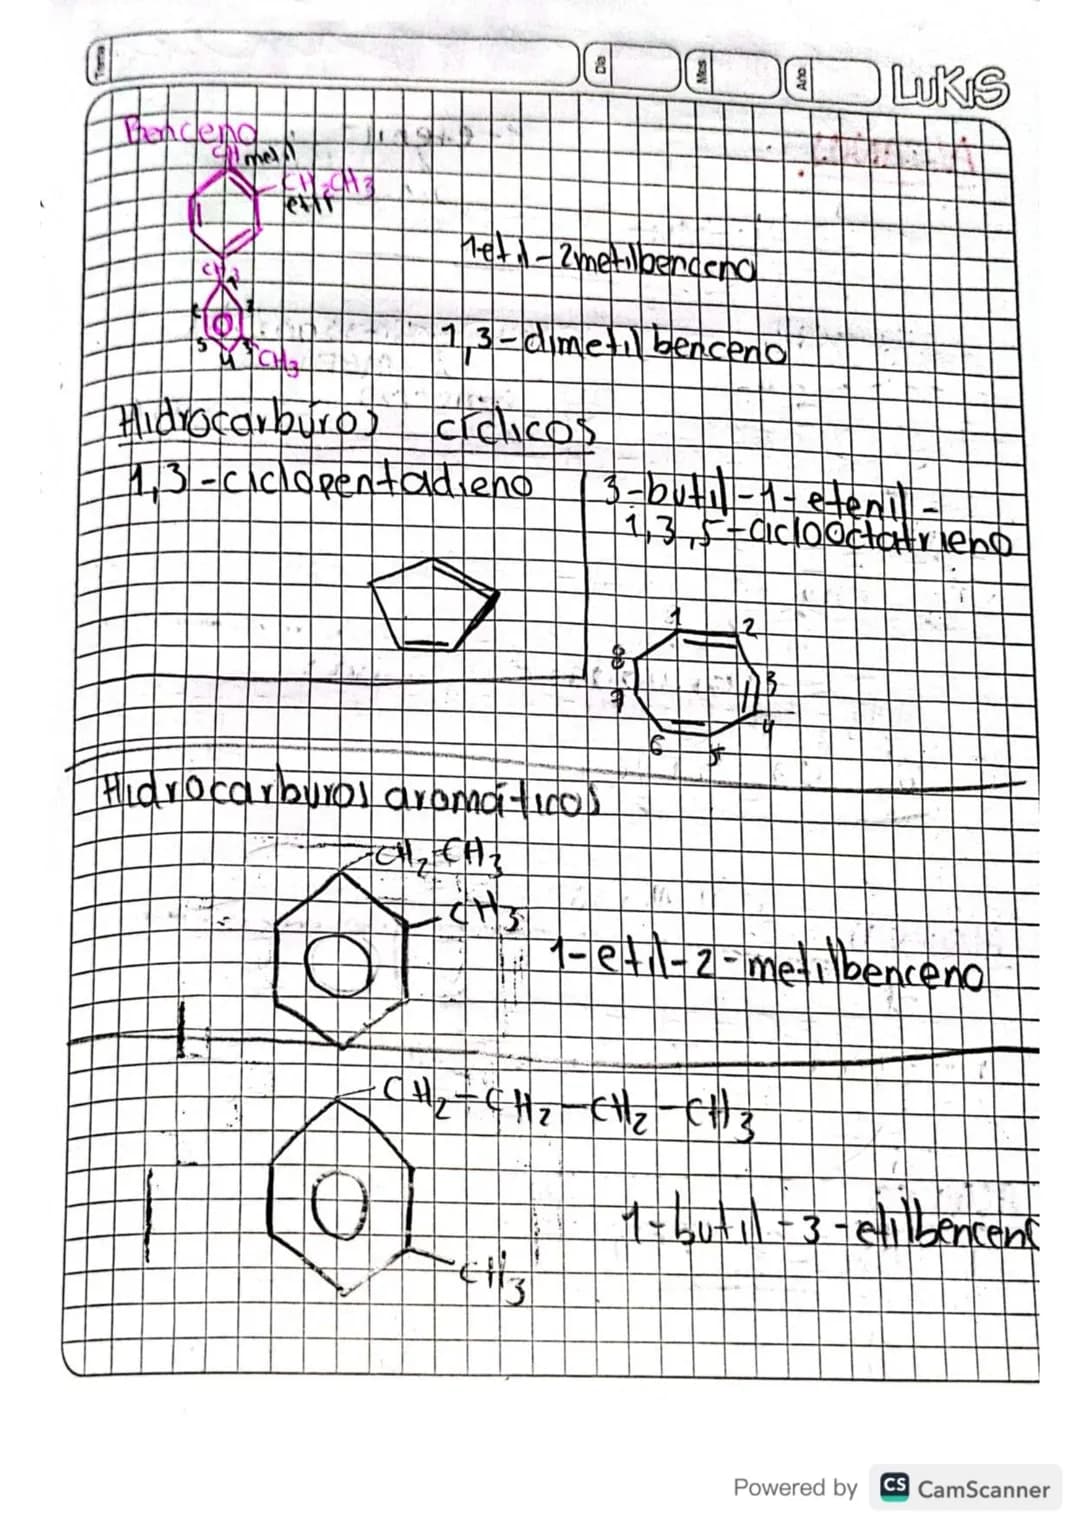 Tema Día Mes Año LUKIS
Benceno
metil
CH₂CH₃
etil
1-etil-2metilbenceno
1
5 4 3 CH₃
1,3-dimetil benceno
Hidrocarburos cíclicos
1,3-ciclopentadieno
3-butil-1-etenil-
1,3,5-ciclooctatrieno
1 2
8 3
7 4
6 5
Hidrocarburos aromáticos
CH₂-CH₃
CH₃
1-etil-2-metilbenceno
CH₂-CH₂-CH₂-CH₃
1-butil-3-etilbenceno
CH₃
Powered by CS CamScanner